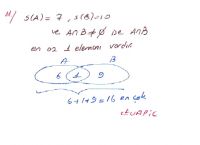 s(A) = 7, s(B) = 10
ve A∩B ≠ ∅ ise A∩B
en az 1 elemanı vardır.
A B
6 1 9
6+1+9=16 en çok